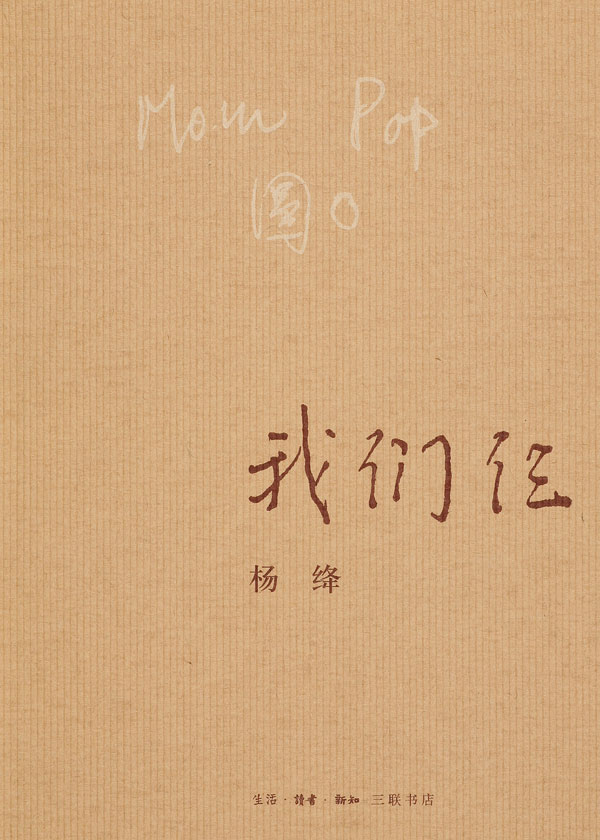 Mom Pop
圓 O
我们仨
杨绛
生活·讀書·新知 三联书店